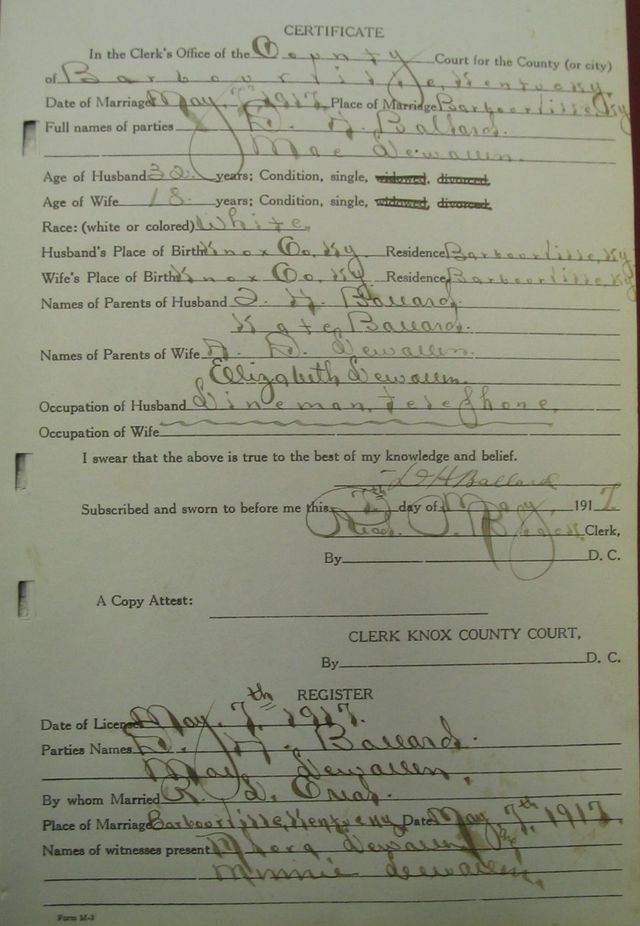 CERTIFICATE
In the Clerk's Office of the County Court for the County (or city)
of Barbourville, Kentucky.
Date of Marriage May, 7th 1917 Place of Marriage Barbourville, Ky
Full names of parties D. H. Ballard.
Mae Dewallen.
Age of Husband 32 years; Condition, single, widowed, divorced,
Age of Wife 18 years; Condition, single, widowed, divorced,
Race: (white or colored) White.
Husband's Place of Birth Knox Co, Ky Residence Barbourville, Ky.
Wife's Place of Birth Knox Co. Ky Residence Barbourville, Ky.
Names of Parents of Husband H. Ballard.
Kate Ballard.
Names of Parents of Wife D. Dewallen.
Elizabeth Dewallen.
Occupation of Husband Lineman, telephone
Occupation of Wife
I swear that the above is true to the best of my knowledge and belief.
H Ballard
Subscribed and sworn to before me this 7th day of May, 1917
Read. Clerk,
By D. C.
A Copy Attest:
CLERK KNOX COUNTY COURT,
By D. C.
REGISTER
Date of License May. 7th 1917.
Parties Names D. H. Ballard.
May Dewallen,
By whom Married R.
Place of Marriage Barbourville, Kentucky Date May 7th, 1917
Names of witnesses present Dewallen
Minnie Dewallen,
Form M-3